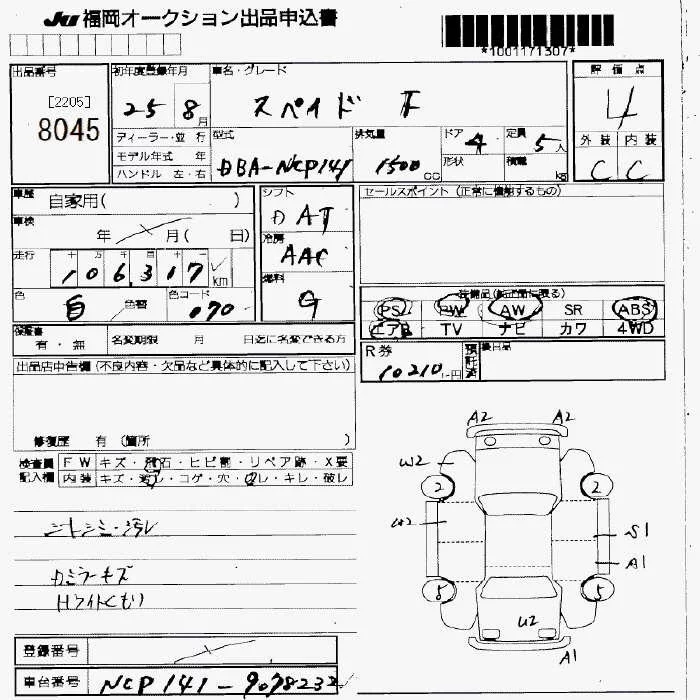 Ju 福岡オークション出品申込書
*1001171307*
出品番号
[2205]
8045
初年度登録年月
25 8月
車名・グレード
スペイド F
評価点
4
外装 内装
C C
ディーラー・並 行
モデル年式 年
ハンドル 左・右
型式
DBA-NCP141
排気量
1500 CC
ドア 4
形状
定員 5人
積載 kg
車歴 自家用( )
車検 年 月( 日)
走行 十 万 千 百 十 一
106,317 km
色 白 色替
色コード 070
シフト
D AT
冷房
AAC
燃料
G
セールスポイント (正常に機能するもの)
装備品(純正品に限る)
PS PW AW SR ABS
エアB TV ナビ カワ 4WD
保証書 有・無
名変期限 月 日迄に名変できる方
R券
10210-円
預託済
後日品
出品店申告欄 (不良内容・欠品など具体的に記入して下さい)
修復歴 有 (箇所 )
検査員記入欄
FW キズ・飛石・ヒビ割・リペア跡・X要
内装 キズ・汚レ・コゲ・穴・凹レ・キレ・破レ
シートシミ・汚レ
カミラーキズ
Hライトくもり
A2 A2
W2
2 2
U2
S1
A1
5 5
U2
A1
登録番号
車台番号 NCP141-9078232